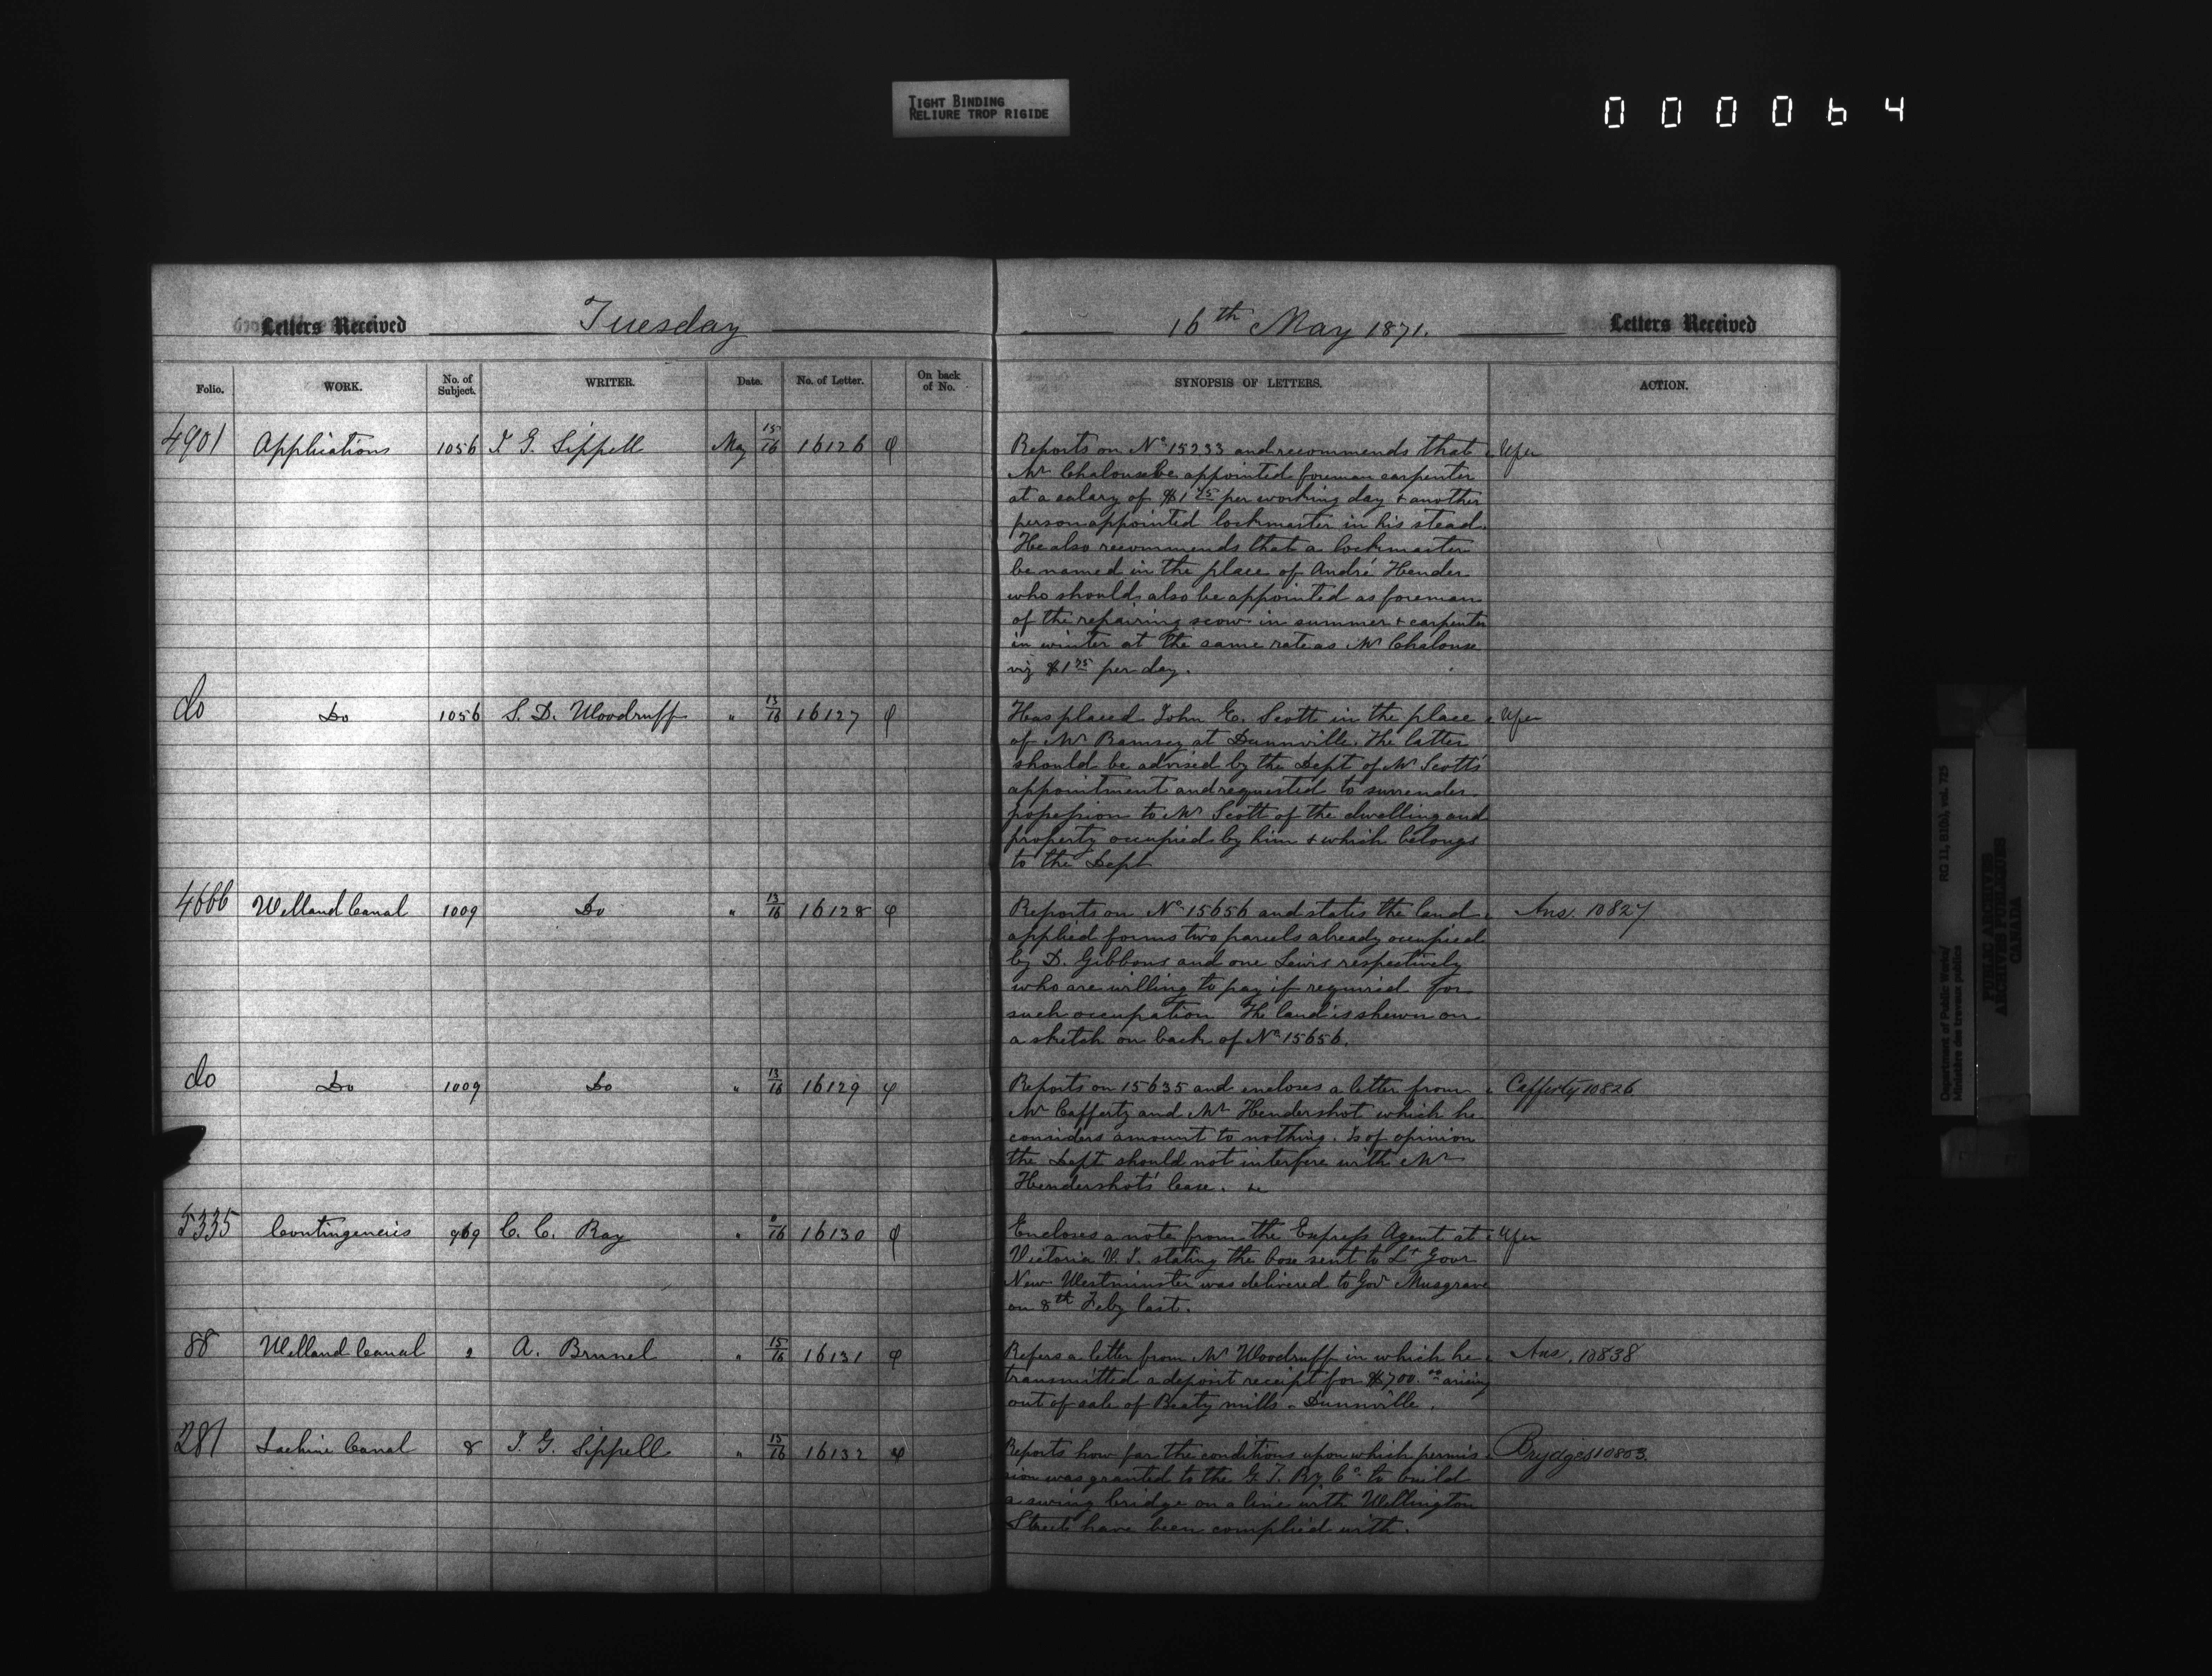 TIGHT BINDING
RELIURE TROP RIGIDE
000064
Letters Received Tuesday
16th May 1871. Letters Received
Folio. WORK. No. of Subject. WRITER. Date. No. of Letter. On back of No. SYNOPSIS OF LETTERS. ACTION.
4901 Applications 1056 J. G. Sippell May 15/16 16126 φ
Reports on No. 15233 and recommends that
Mr Chalouse be appointed foreman carpenter
at a salary of $1 75 per working day & another
person appointed lockmaster in his stead.
He also recommends that a lockmaster
be named in the place of André Hender
who should also be appointed as foreman
of the repairing scow in summer & carpenter
in winter at the same rate as Mr Chalouse
viz $1 75 per day.
do Do 1056 S. D. Woodruff " 13/16 16127 φ
Has placed John E. Scott in the place
of Mr Ramsey at Dunnville. The latter
should be advised by the Dept of Mr Scott's
appointment and requested to surrender
possession to Mr Scott of the dwelling and
property occupied by him & which belongs
to the Dept
4666 Welland Canal 1009 Do " 13/16 16128 φ
Reports on No. 15656 and states the land Ans. 10827
applied forms two parcels already occupied
by D. Gibbons and one Lewis respectively
who are willing to pay if required for
such occupation The land is shewn on
a sketch on back of No. 15656.
do Do 1009 Do " 13/16 16129 φ
Reports on 15635 and encloses a letter from Cafferty 10826
Mr Cafferty and Mr Hendershot which he
considers amount to nothing. Is of opinion
the Dept should not interfere with Mr
Hendershot's lease. &c
5335 Contingencies 969 C. C. Ray " 16 16130 φ
Encloses a note from the Express Agent at
Victoria V. I. stating the box sent to Lt Govr
New Westminster was delivered to Gov Musgrave
on 8th Feby last.
88 Welland Canal 2 A. Brunel " 15/16 16131 φ
Refers a letter from Mr Woodruff in which he Ans. 10838
transmitted a deposit receipt for $700.00 arising
out of sale of Beaty mills - Dunnville.
281 Lachine Canal 8 J. G. Sippell " 15/16 16132 φ
Reports how far the conditions upon which permis- Brydges 10803.
sion was granted to the G. T. Ry Co. to build
a swing bridge on a line with Wellington
Street have been complied with.
Department of Public Works/ RG 11, B1(b), vol. 725
Ministère des travaux publics
PUBLIC ARCHIVES
ARCHIVES PUBLIQUES
CANADA